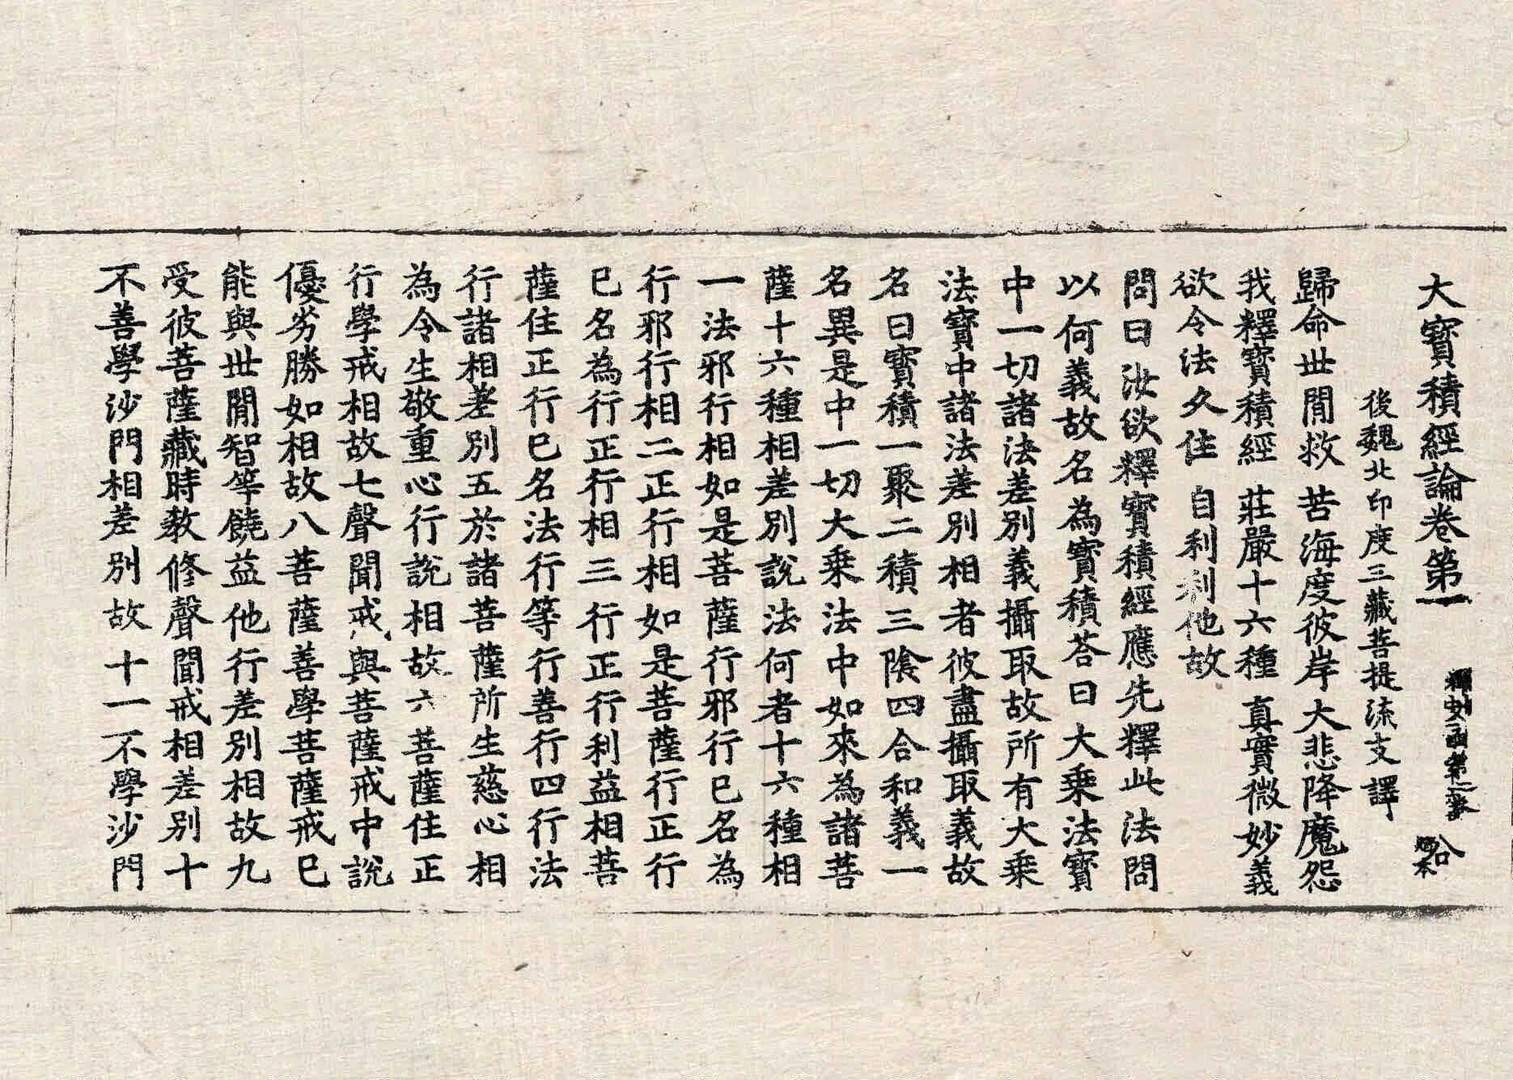 大寶積經論卷第一
後魏北印度三藏菩提流支譯
歸命世閒救 苦海度彼岸 大悲降魔怨
我釋寶積經 莊嚴十六種 真實微妙義
欲令法久住 自利利他故
問曰汝欲釋寶積經應先釋此法門
以何義故名為寶積荅曰大乘法寶
中一切諸法差別義攝取故所有大乘
法寶中諸法差別相者彼盡攝取義故
名曰寶積一聚二積三陰四合和義一
名異是中一切大乘法中如來為諸菩
薩十六種相差別說法何者十六種相
一法邪行相如是菩薩行邪行已名為
行邪行相二正行相如是菩薩行正行
已名為行正行相三行正行利益相菩
薩住正行已名法行等行善行四行法
行諸相差別五於諸菩薩所生慈心相
為令生敬重心行說相故六菩薩住正
行學戒相故七聲聞戒與菩薩戒中說
優劣勝如相故八菩薩善學菩薩戒已
能與世閒智等饒益他行差別相故九
受彼菩薩藏時教修聲聞戒相差別十
不善學沙門相差別故十一不學沙門